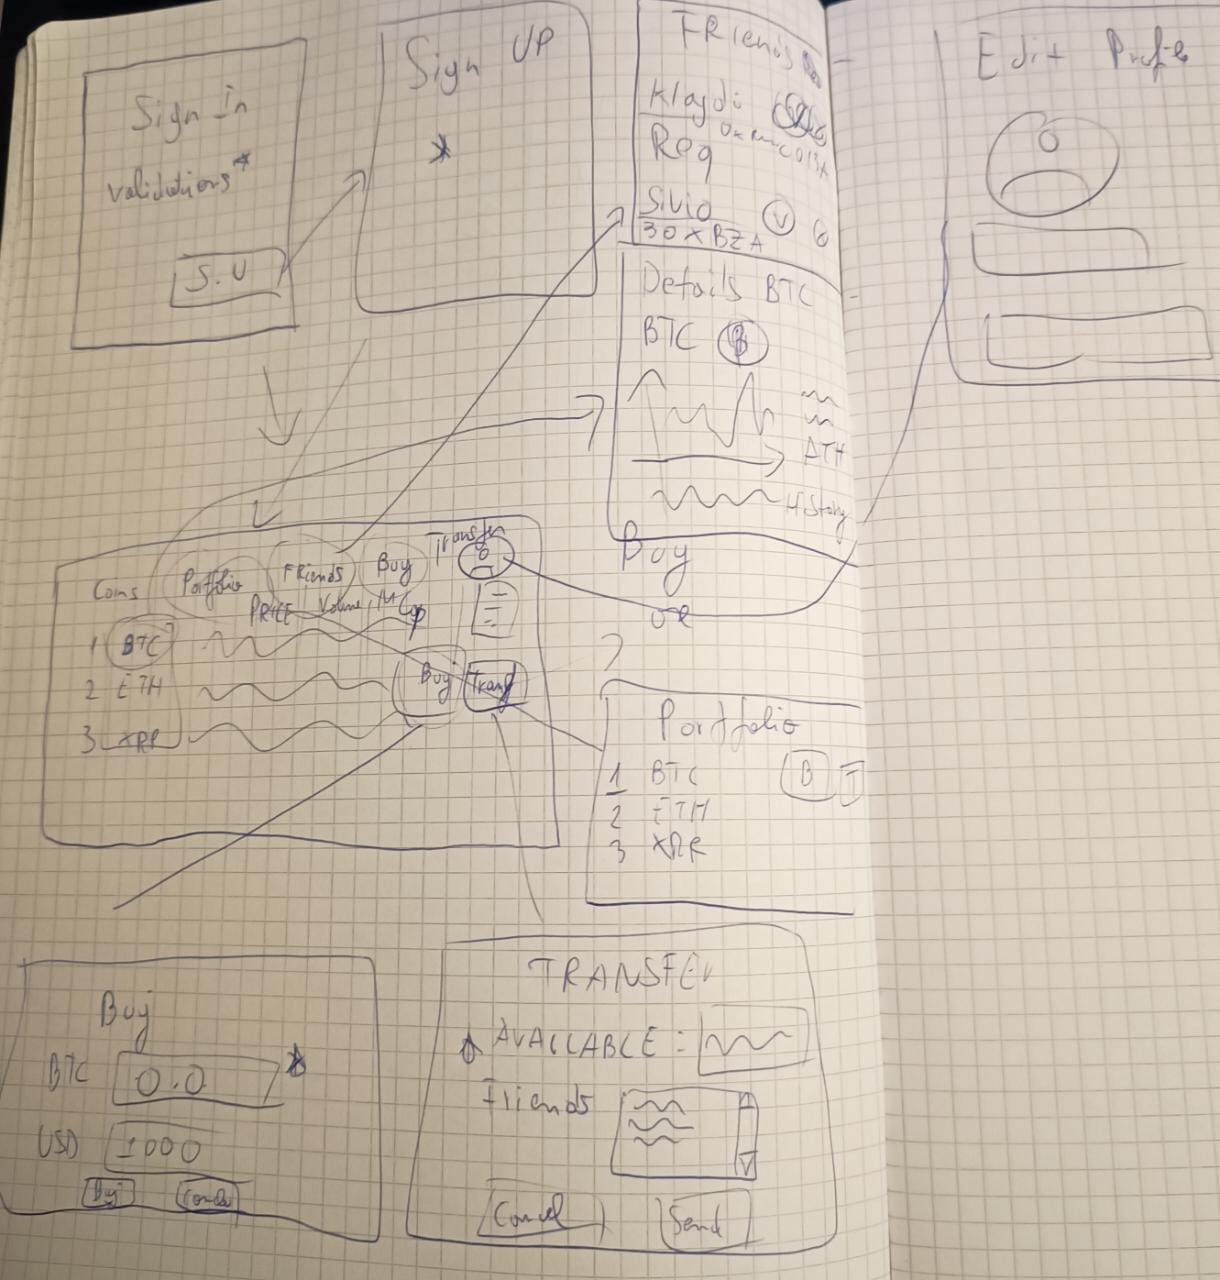 Sign In
validations*
S.U
Sign UP
*
FRiends
Klajdi
Req
Silvio
30XBZA
V
Details BTC
BTC
ATH
History
Buy
or
Edit Profile
Coins
Portfolio
FRiends
Buy
Transfer
PRICE Volume, M Cap
1 BTC
2 ETH
3 XRP
Buy
Transf
Portfolio
1 BTC B T
2 ETH
3 XRP
Buy
BTC 0.0 *
USD 1000
Buy
TRANSFER
AVAILABLE :
Friends
Cancel Send